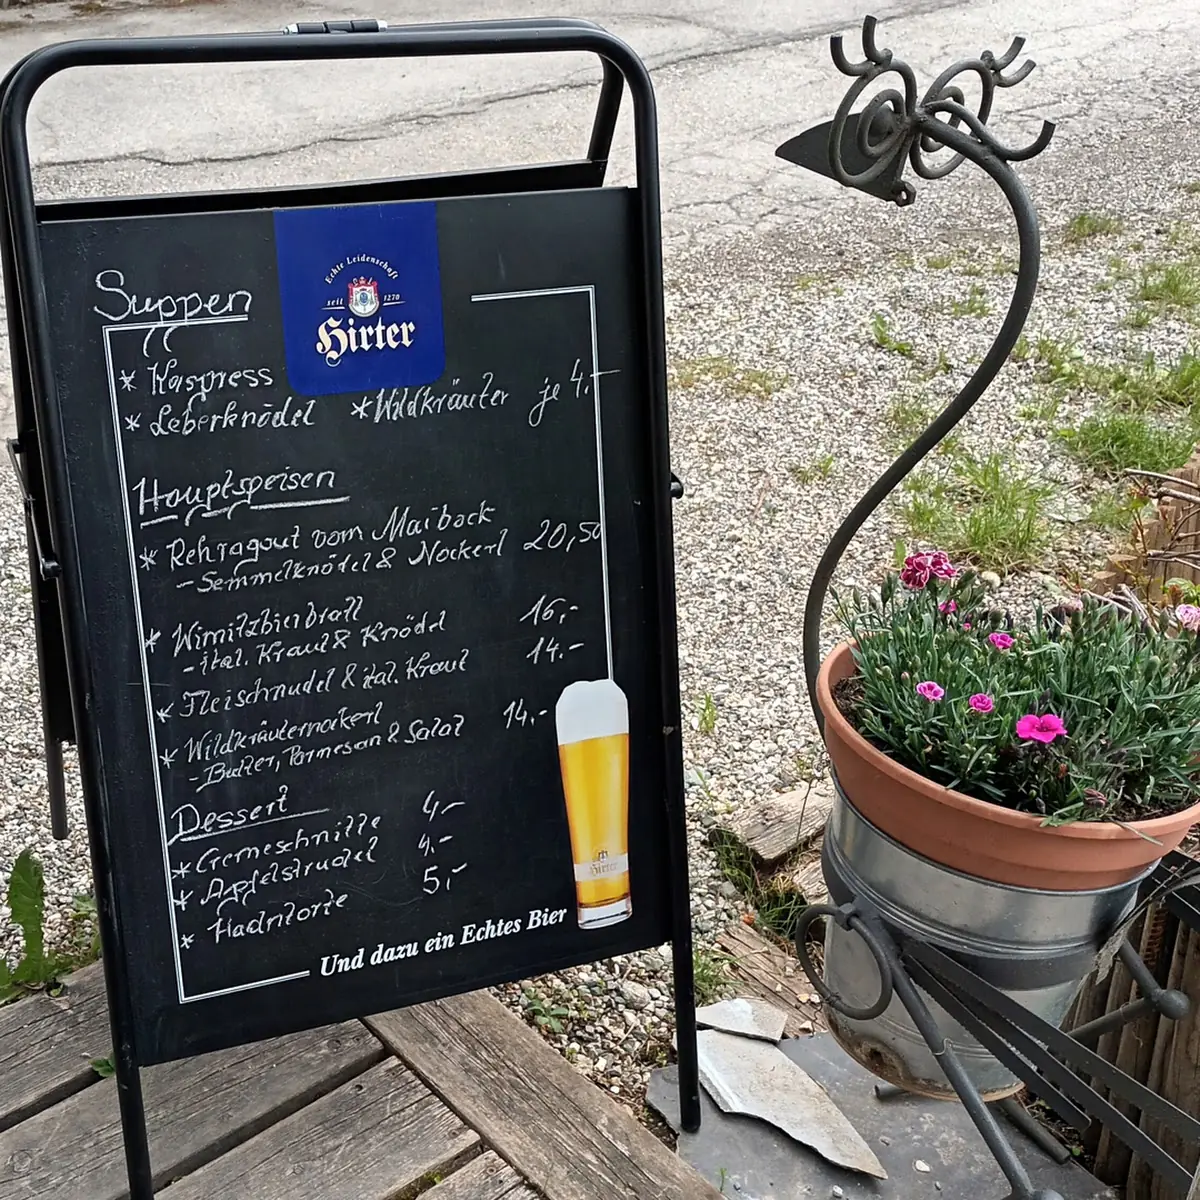 Echte Leidenschaft
seit 1270
Hirter
Suppen
* Kaspress
* Leberknödel * Wildkräuter je 4.-
Hauptspeisen
* Rehragout vom Maibock
- Semmelknödel & Nockerl 20,50
* Wimitzbierbratl 16,-
- ital. Kraut & Knödel
* Fleischnudel & ital. Kraut 14.-
* Wildkräuternockerl
- Butter, Parmesan & Salat 14.-
Dessert
* Cremeschnitte 4,-
* Apfelstrudel 4.-
* Hadntorte 5,-
Und dazu ein Echtes Bier
Hirter